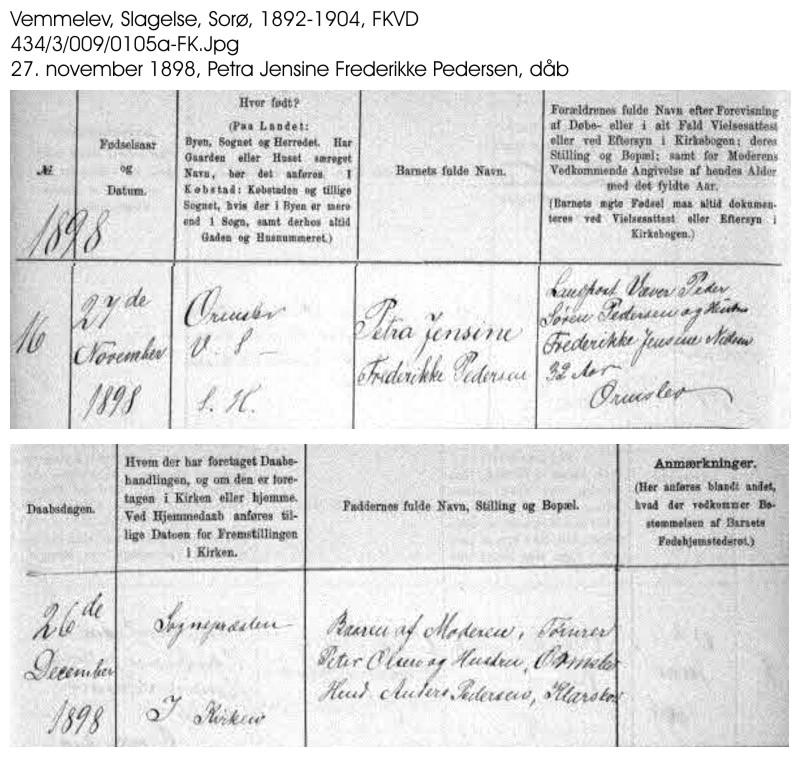 Vemmelev, Slagelse, Sorø, 1892-1904, FKVD
434/3/009/0105a-FK.Jpg
27. november 1898, Petra Jensine Frederikke Pedersen, dåb
№
Fødselsaar
og
Datum.
Hvor født?
(Paa Landet:
Byen, Sognet og Herredet. Har
Gaarden eller Huset særeget
Navn, bør det anføres. I
Købstad: Købstaden og tillige
Sognet, hvis der i Byen er mere
end 1 Sogn, samt derhos altid
Gaden og Husnummeret.)
Barnets fulde Navn.
Forældrenes fulde Navn efter Forevisning
af Døbe- eller i alt Fald Vielsesattest
eller ved Eftersyn i Kirkebogen; deres
Stilling og Bopæl; samt for Moderens
Vedkommende Angivelse af hendes Alder
med det fyldte Aar.
(Barnets ægte Fødsel maa altid dokumen-
teres ved Vielsesattest eller Eftersyn i
Kirkebogen.)
1898
16
27de
November
1898
Ormslev
V. S
S. H.
Petra Jensine
Frederikke Pedersen
Væver Peder
Søren Pedersen og Hustru
Frederikke Jensine Nielsen
32 Aar
Ormslev
Daabsdagen.
Hvem der har foretaget Daabs-
handlingen, og om den er fore-
tagen i Kirken eller hjemme.
Ved Hjemmedaab anføres til-
lige Datoen for Fremstillingen
i Kirken.
Faddernes fulde Navn, Stilling og Bopæl.
Anmærkninger.
(Her anføres blandt andet,
hvad der vedkommer Be-
stemmelsen af Barnets
Fødehjemstederet.)
26de
December
1898
Sognepræsten
I Kirken
Baaren af Moderen, Tømrer
Peter Olsen og Hustru, Ormslev
Hmd. Anders Pedersen,